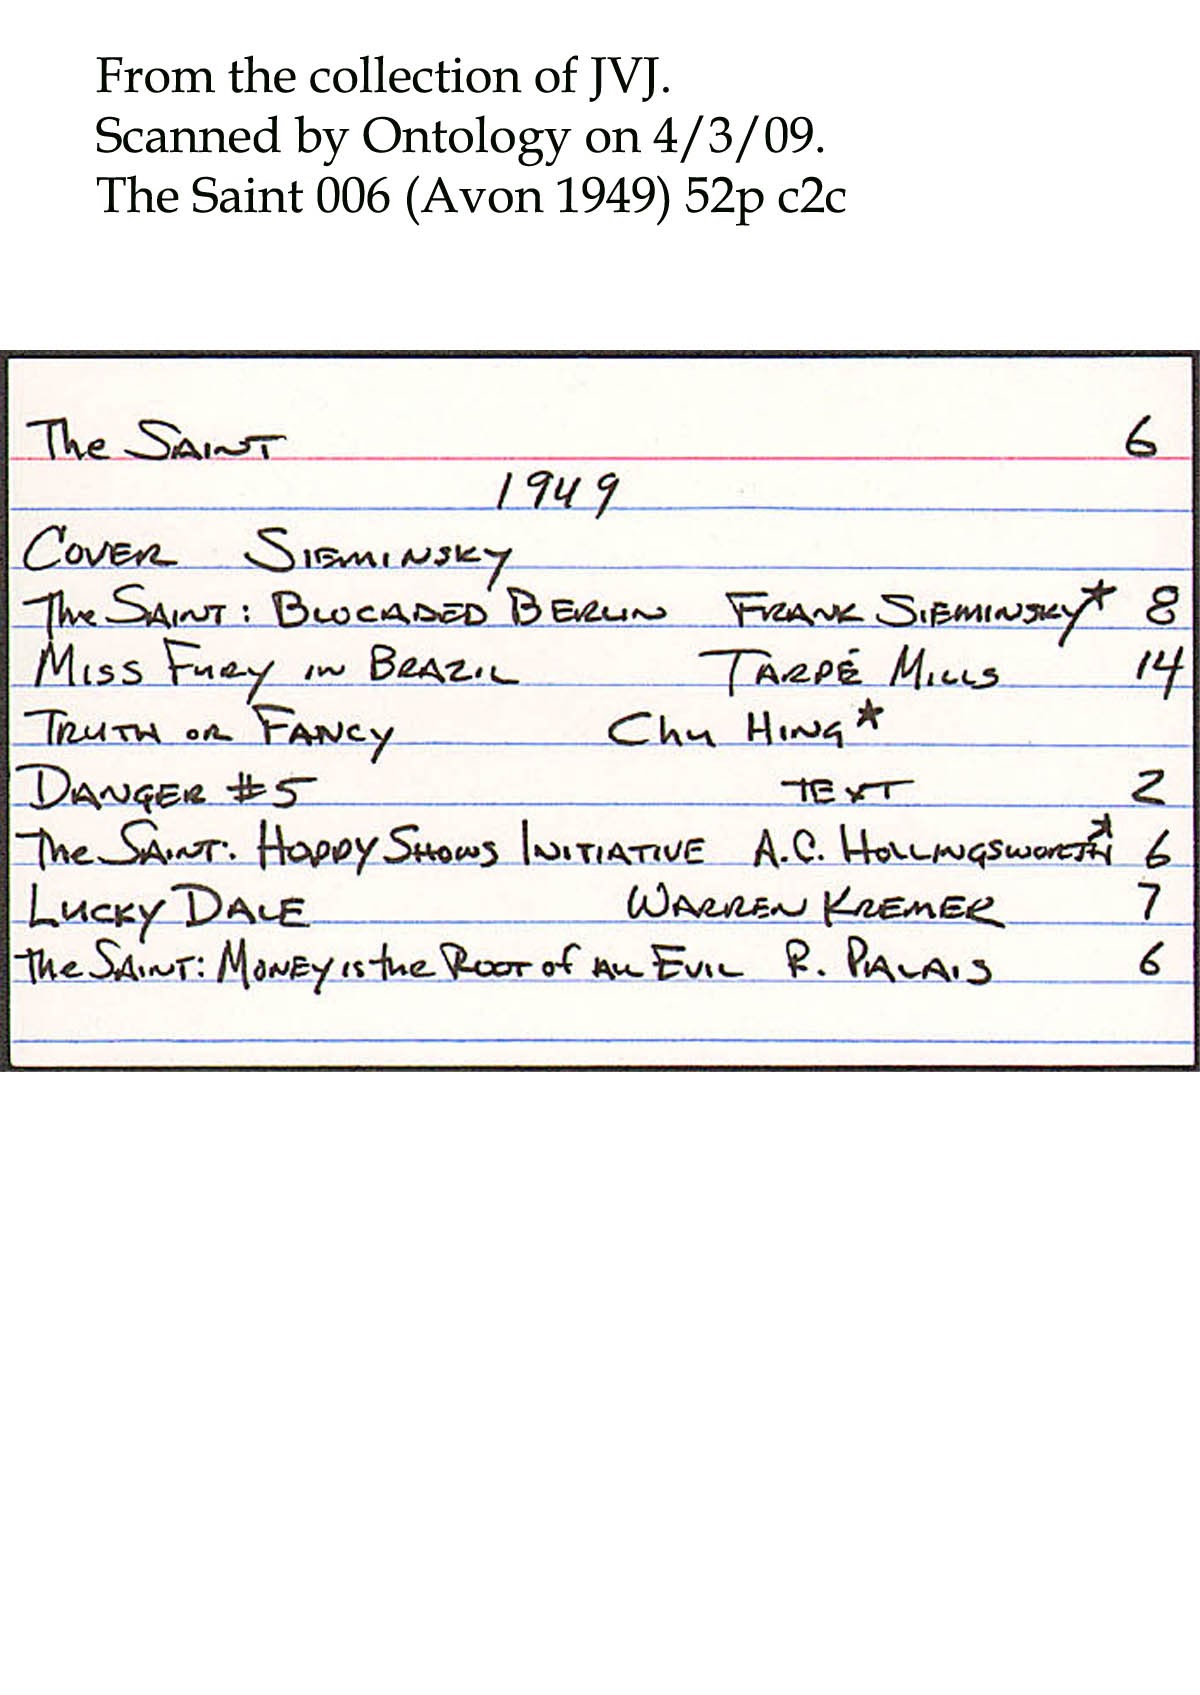 From the collection of JVJ.
Scanned by Ontology on 4/3/09.
The Saint 006 (Avon 1949) 52p c2c
The Saint 6
1949
Cover Sieminsky
The Saint: Blocaded Berlin Frank Sieminsky* 8
Miss Fury in Brazil Tarpé Mills 14
Truth or Fancy Chu Hing*
Danger #5 Text 2
The Saint: Hoppy Shows Initiative A.C. Hollingsworth* 6
Lucky Dale Warren Kremer 7
The Saint: Money is the Root of All Evil R. Palais 6